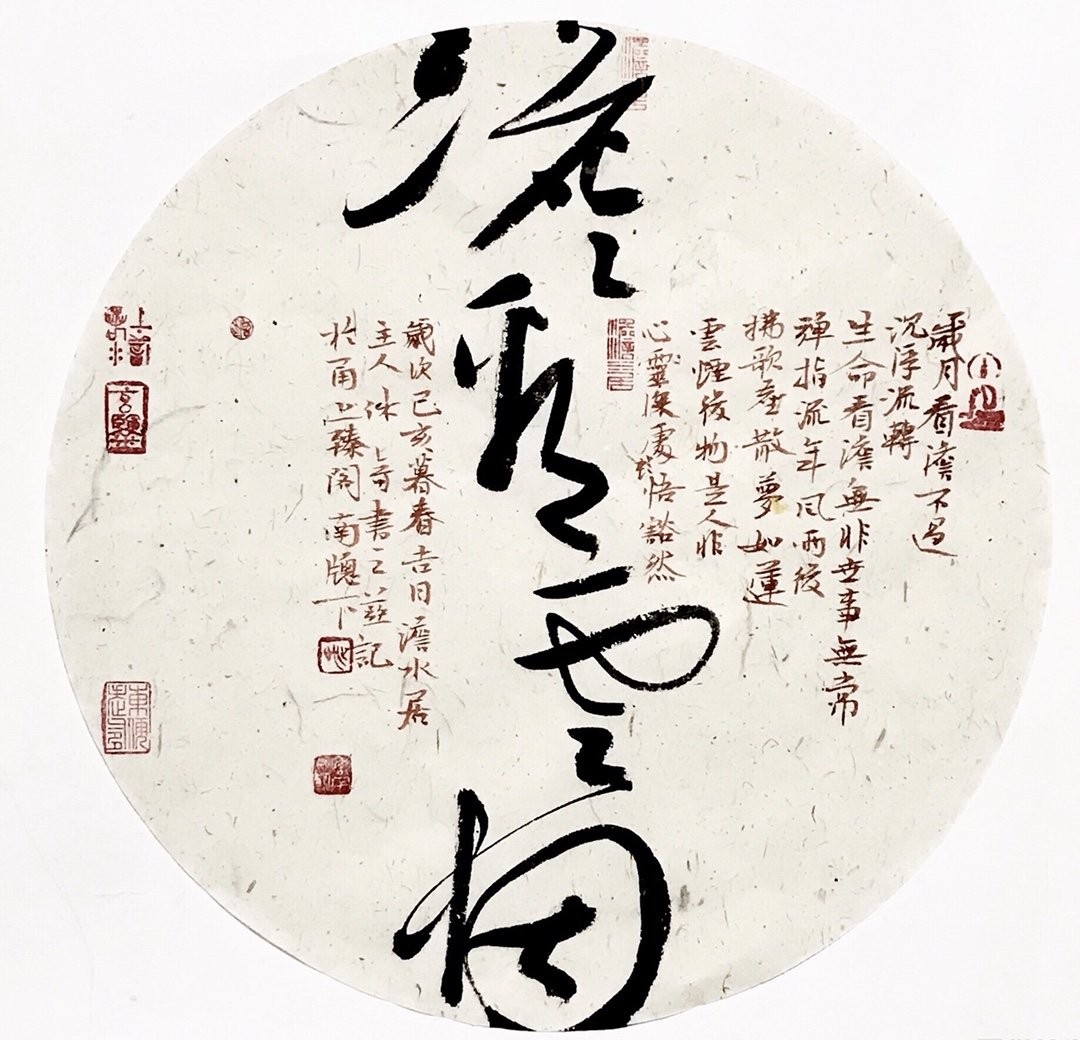 澹看雲烟
歲月看澹不過
沉浮流轉
生命看澹無非世事無常
禪指流年風雨後
拂歌塵散夢如蓮
雲煙後物是人非
心靈深處悟豁然
歲次己亥暮春吉日澹水居
主人休奇書之並記
於甬上臻閣南牖下